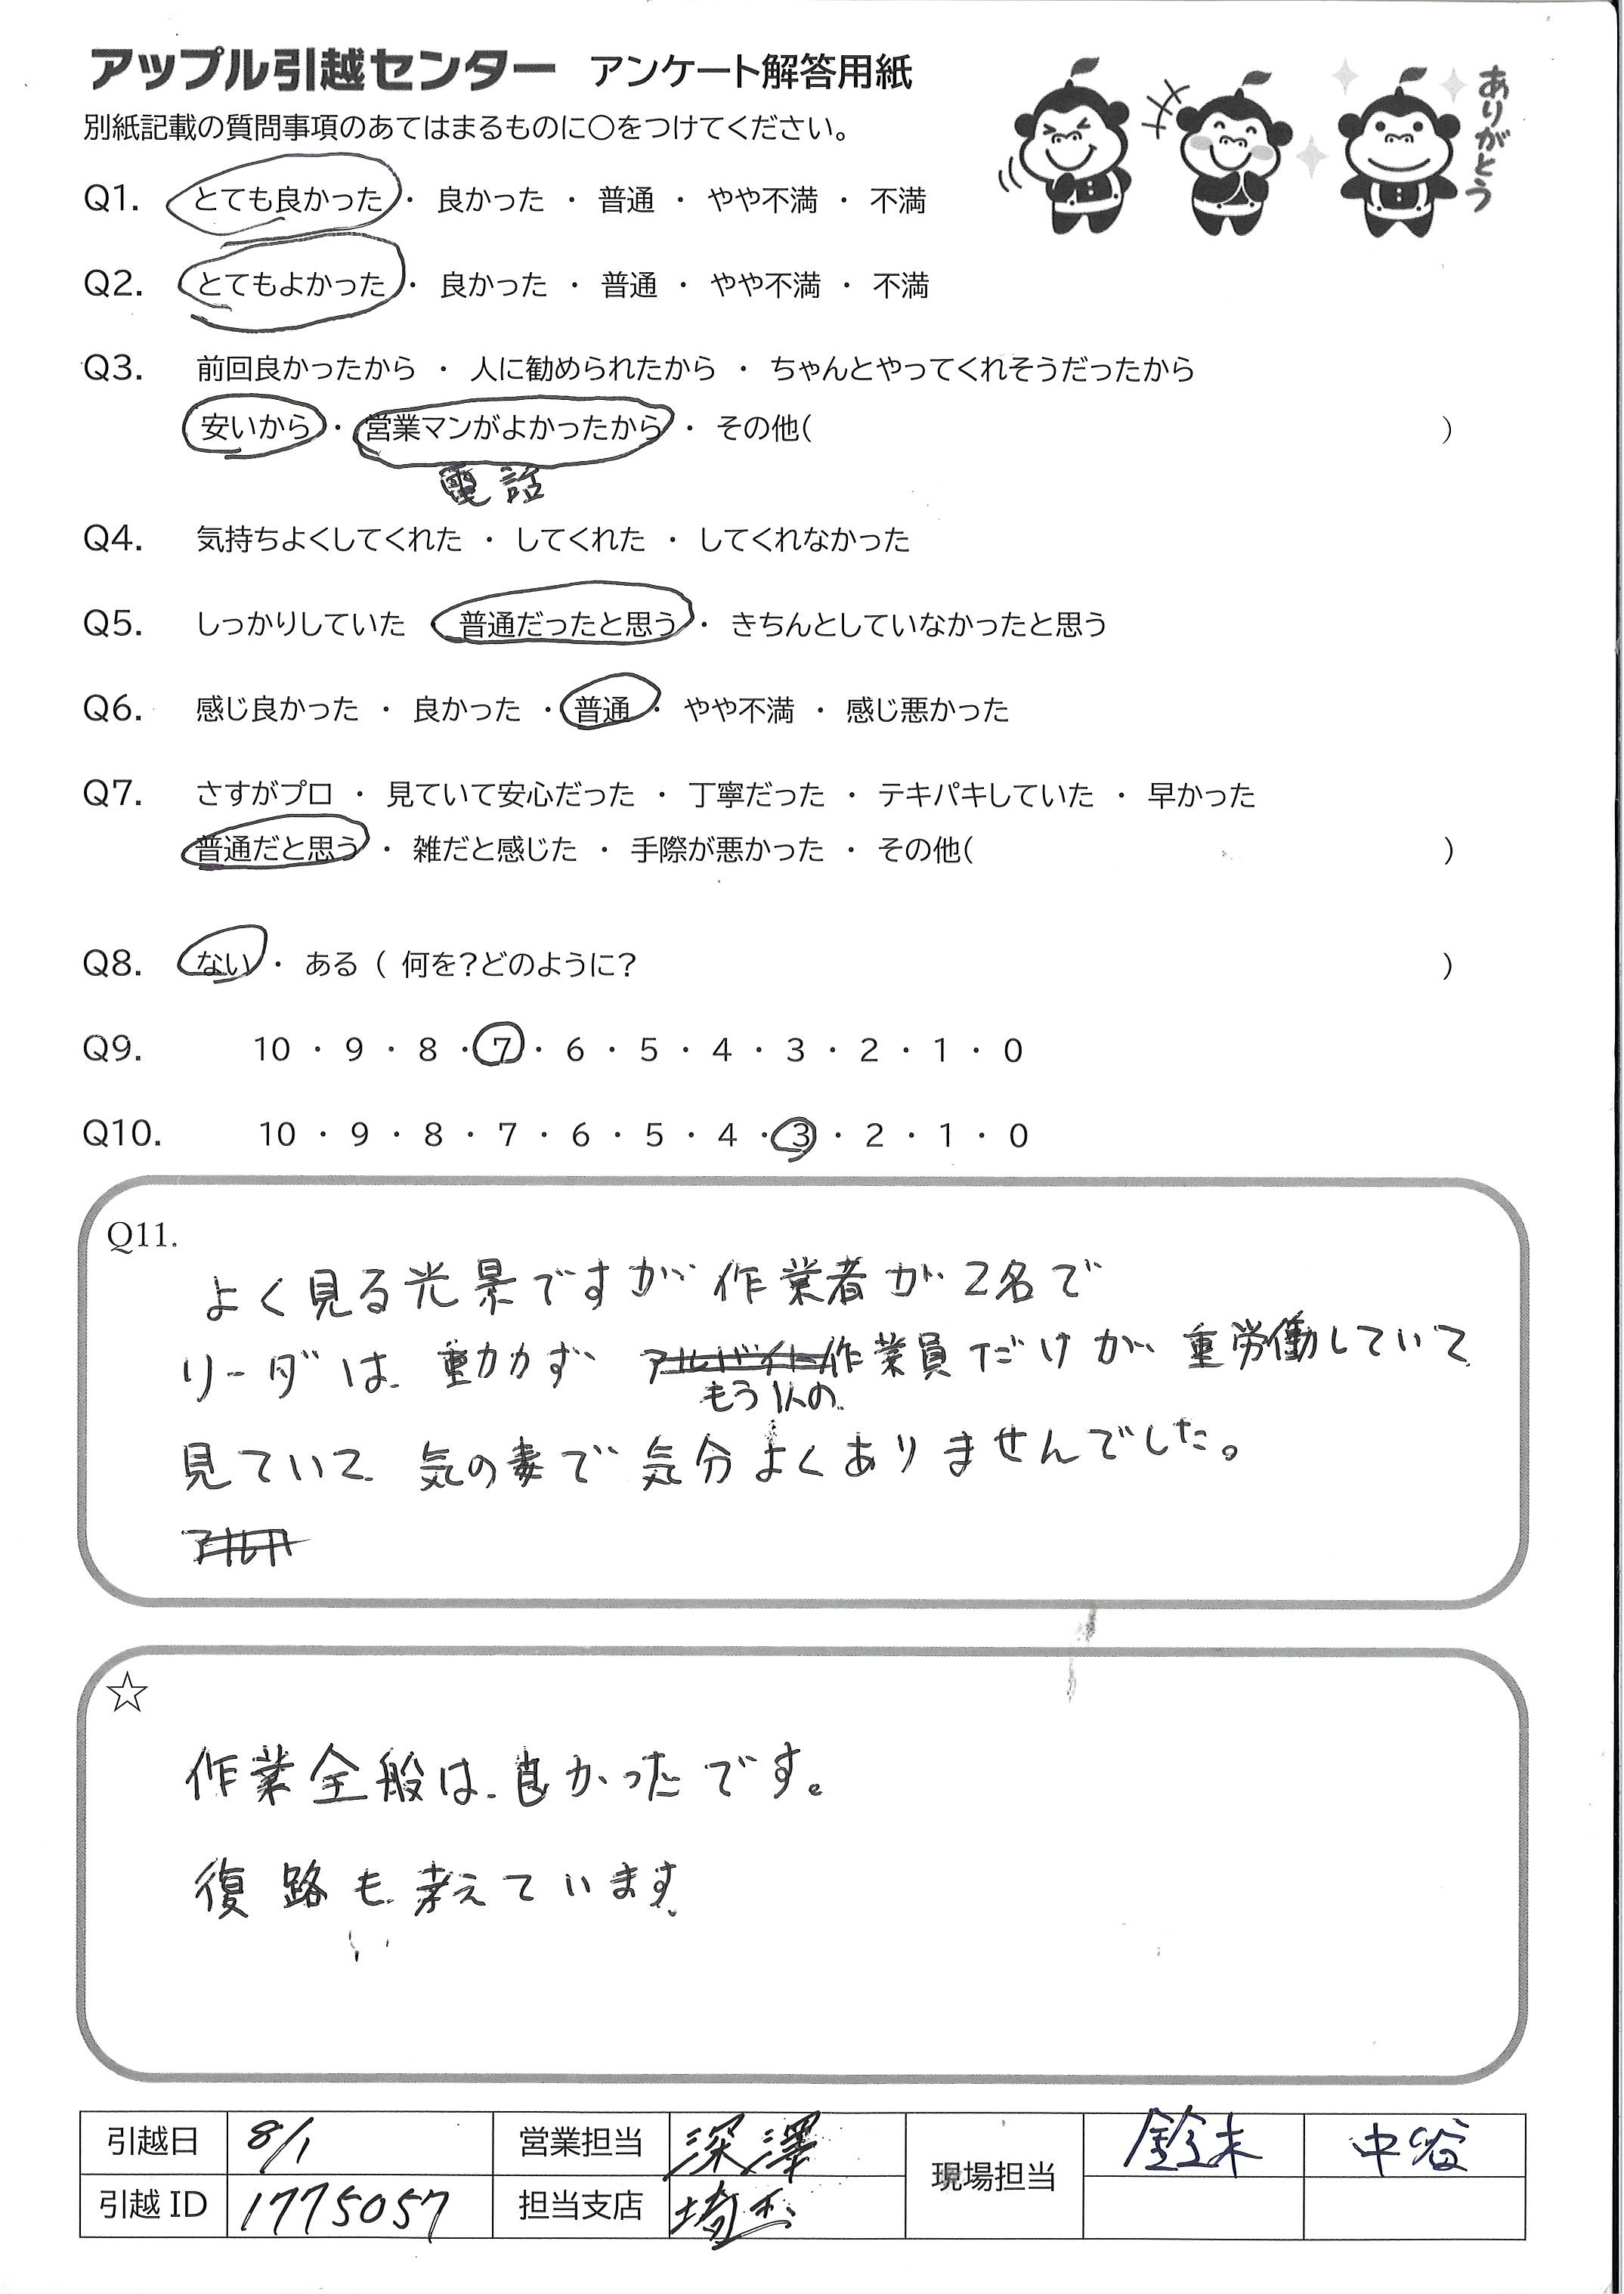 アップル引越センター アンケート解答用紙
別紙記載の質問事項のあてはまるものに○をつけてください。
ありがとう
Q1. とても良かった ・ 良かった ・ 普通 ・ やや不満 ・ 不満
Q2. とてもよかった ・ 良かった ・ 普通 ・ やや不満 ・ 不満
Q3. 前回良かったから ・ 人に勧められたから ・ ちゃんとやってくれそうだったから
安いから ・ 営業マンがよかったから ・ その他( )
電話
Q4. 気持ちよくしてくれた ・ してくれた ・ してくれなかった
Q5. しっかりしていた 普通だったと思う ・ きちんとしていなかったと思う
Q6. 感じ良かった ・ 良かった ・ 普通 ・ やや不満 ・ 感じ悪かった
Q7. さすがプロ ・ 見ていて安心だった ・ 丁寧だった ・ テキパキしていた ・ 早かった
普通だと思う ・ 雑だと感じた ・ 手際が悪かった ・ その他( )
Q8. ない ・ ある ( 何を?どのように? )
Q9. 10 ・ 9 ・ 8 ・ 7 ・ 6 ・ 5 ・ 4 ・ 3 ・ 2 ・ 1 ・ 0
Q10. 10 ・ 9 ・ 8 ・ 7 ・ 6 ・ 5 ・ 4 ・ 3 ・ 2 ・ 1 ・ 0
Q11.
よく見る光景ですが作業者が2名で
リーダは動かず アルバイト作業員だけが重労働していて
もう1人の
見ていて気の毒で気分よくありませんでした。
☆
作業全般は良かったです。
復路も考えています。
引越日 8/1 営業担当 深澤 現場担当 鈴木 中谷
引越ID 1775057 担当支店 埼玉